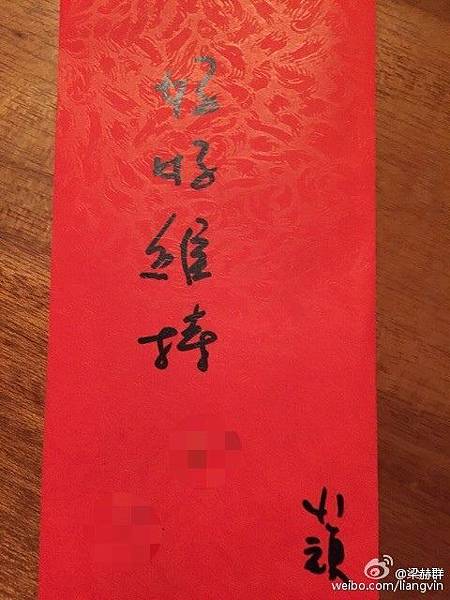 好好維持
小禎
@梁赫群
weibo.com/liangvin